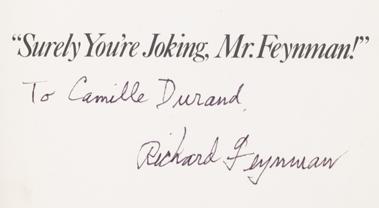 “Surely You're Joking, Mr. Feynman!”
To Camille Durand,
Richard Feynman